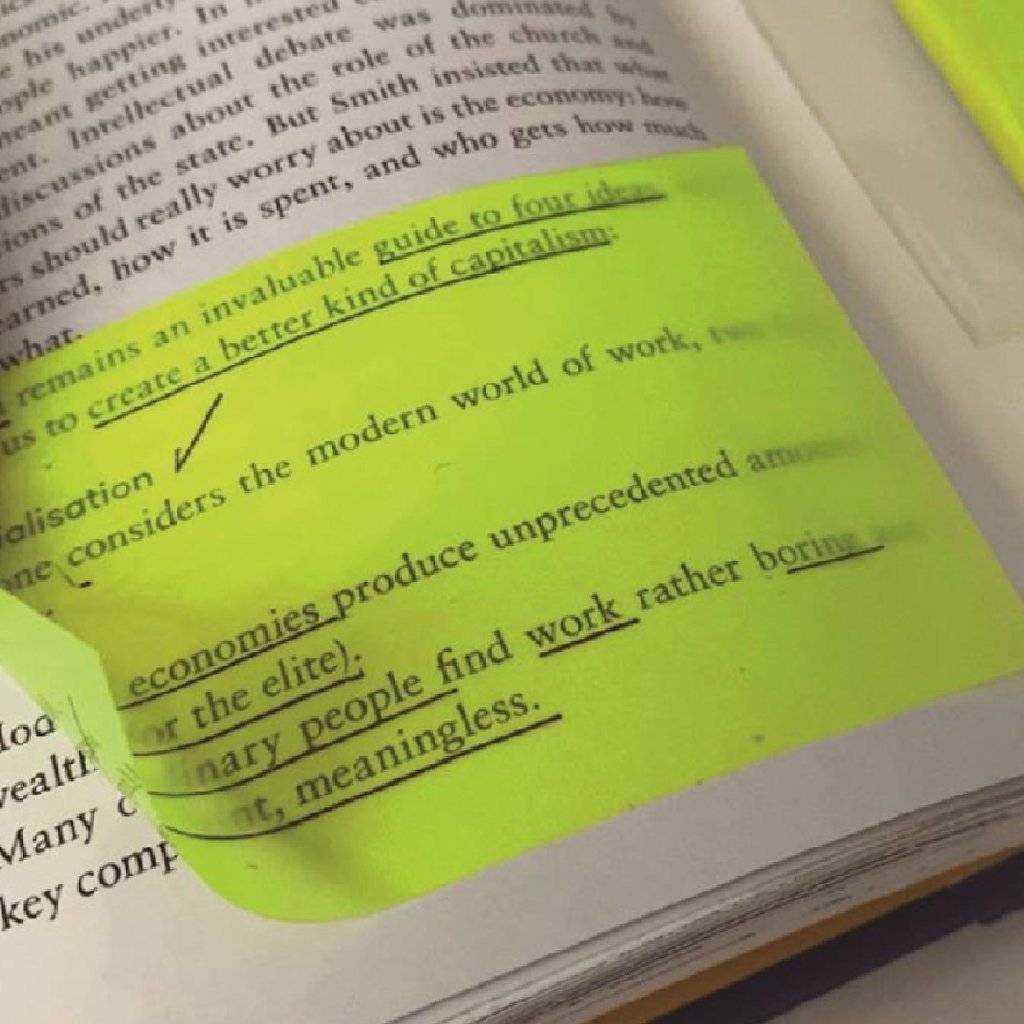 his underly
ople happier. In
meant getting interested
ent. Intellectual debate was dominated by
discussions about the role of the church and
ions of the state. But Smith insisted that what
rs should really worry about is the economy: how
earned, how it is spent, and who gets how much
what.
remains an invaluable guide to four ideas
us to create a better kind of capitalism:
ialisation
one considers the modern world of work, two
economies produce unprecedented amounts
or the elite).
inary people find work rather boring
nt, meaningless.
wealth
Many
key comp